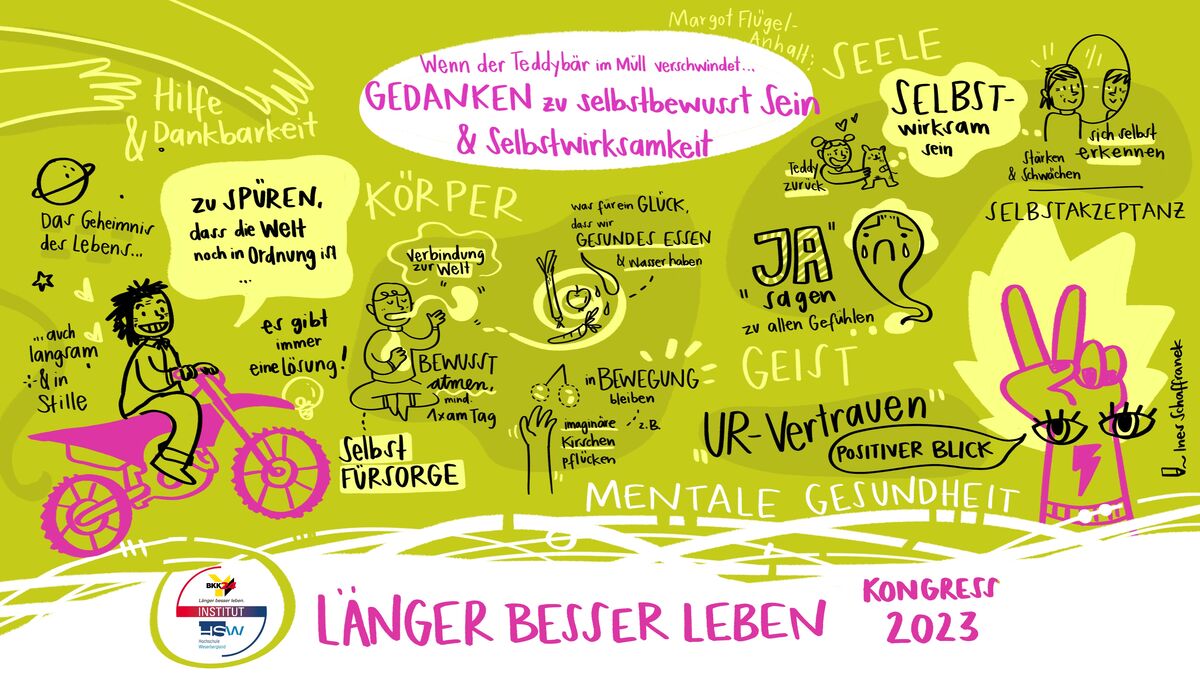 Margot Flügel-
Anhalt:
Wenn der Teddybär im Müll verschwindet...
GEDANKEN zu selbstbewusst Sein
& Selbstwirksamkeit
Hilfe
& Dankbarkeit
Das Geheimnis
des Lebens...
zu SPÜREN,
dass die Welt
noch in Ordnung ist
...
...auch
langsam
& in
Stille
es gibt
immer
eine Lösung!
KÖRPER
Verbindung
zur Welt
BEWUSST
atmen,
mind.
1x am Tag
Selbst
FÜRSORGE
was für ein GLÜCK,
dass wir
GESUNDES ESSEN
& Wasser haben
in BEWEGUNG
bleiben
z.B.
imaginäre
Kirschen
pflücken
SEELE
SELBST-
wirksam
sein
Teddy
zurück
sich selbst
erkennen
Stärken
& Schwächen
SELBSTAKZEPTANZ
"JA"
sagen
zu allen Gefühlen
GEIST
"UR-Vertrauen"
POSITIVER BLICK
MENTALE GESUNDHEIT
Ines Schaffranek
BKK24
Länger besser leben.
INSTITUT
HSW
Hochschule
Weserbergland
LÄNGER BESSER LEBEN
KONGRESS
2023